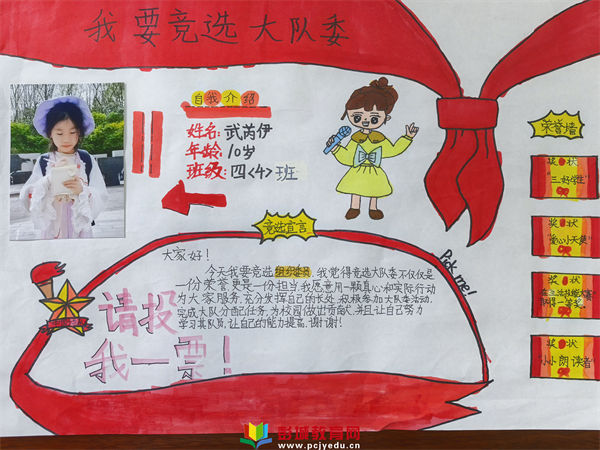 我要竞选大队委
自我介绍
姓名：武芮伊
年龄：10岁
班级：四<4>班
荣誉墙
奖状
"三好学生"
奖状
"爱心小天使"
奖状
在生活技能大赛
获得一等奖
奖状
"小小朗读者"
Pick me!
竞选宣言
大家好！
今天我要竞选组织委员，我觉得竞选大队委不仅仅是
一份荣誉更是一份担当我愿意用一颗真心和实际行动
为大家服务，充分发挥自己的长处，积极参加大队委活动，
完成大队分配任务，为校园做出贡献，并且让自己努力
学习其队员，让自己的能力提高，谢谢！
请投
我一票！
彭城教育网
www.pcjyedu.cn